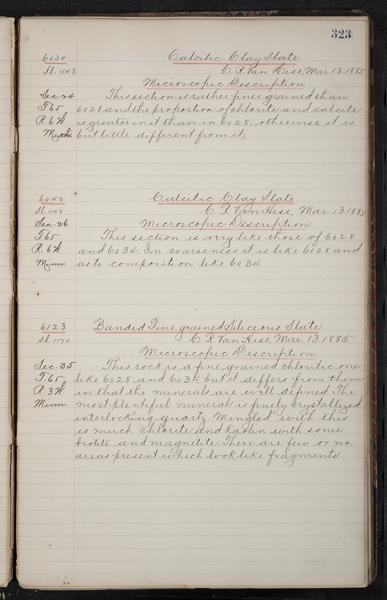 323
6034 Calcitic Clay Slate
Sl. 1143 C. R. Van Hise, Mar 13, 1885
Microscopic Description
Sec. 24 This section is rather finer grained than
T 65 6028 and the proportion of chlorite and calcite
R. 6 W. is greater in it than in 6028, otherwise it is
but little different from it.
6042 Calcitic Clay Slate
Sl. C. R. Van Hise, Mar 13, 1885
Sec. 26 Microscopic Description.
T 65 This section is very like those of 6028
R. 6 W. and 6034. In coarseness it is like 6028 and
Minn as to composition like 6034.
6123 Banded Fine grained Siliceous Slate
Sl. 1170 C. R. Van Hise, Mar 13, 1885
Microscopic Description
Sec. 35 This rock is a fine grained chloritic one
T. 65 like 6028 and 6034 but it differs from them
R 3 W. in that the minerals are well defined. The
Minn most plentiful mineral is finely crystallized
interlocking quartz. Mingled with this
is much chlorite and kaolin with some
biotite and magnetite. There are few or no
areas present which look like fragments.